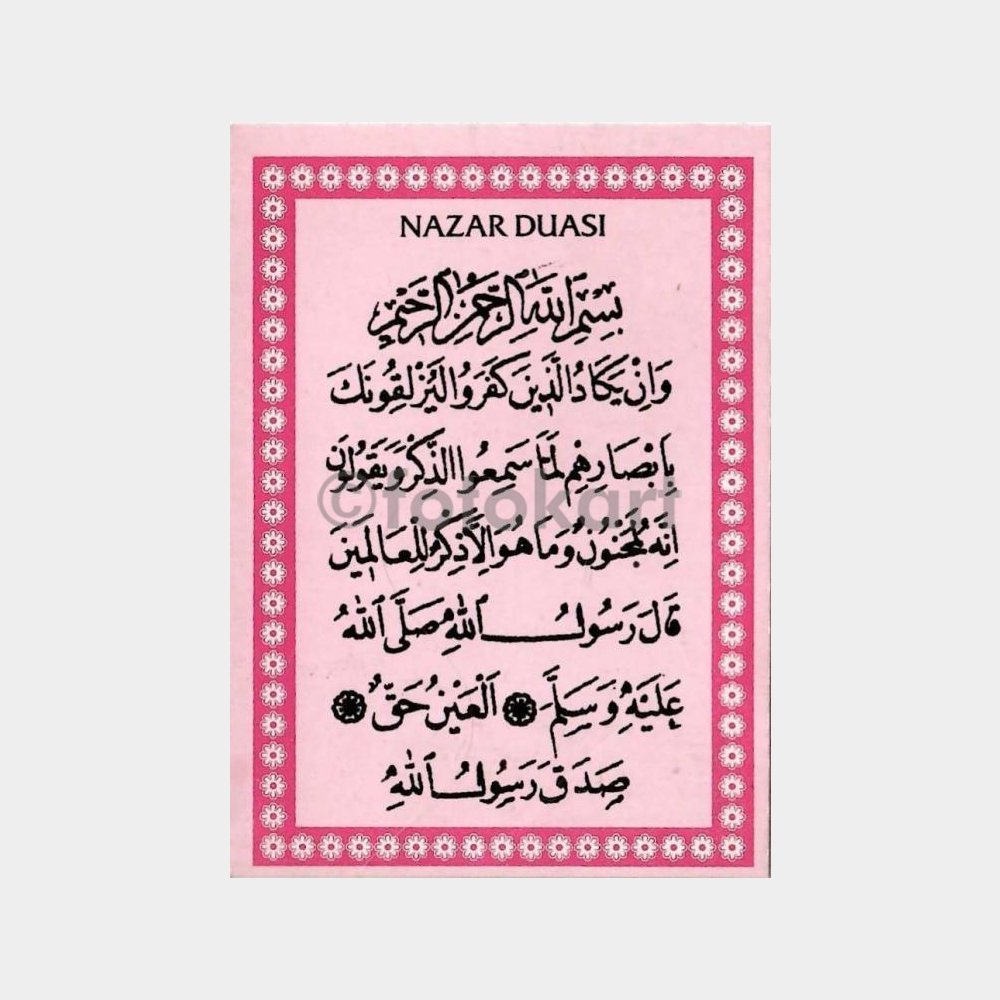 NAZAR DUASI
بِسْمِ اللّٰهِ الرَّحْمٰنِ الرَّحٖيمِ
وَاِنْ يَكَادُ الَّذٖينَ كَفَرُوا لَيُزْلِقُونَكَ
بِاَبْصَارِهِمْ لَمَّا سَمِعُوا الذِّكْرَ وَيَقُولُونَ
اِنَّهُ لَمَجْنُونٌ وَمَا هُوَ اِلَّا ذِكْرٌ لِلْعَالَمٖينَ
©fotokart
قَالَ رَسُولُ اللّٰهُ صَلَّى اللّٰهُ
عَلَيْهِ وَسَلَّمَ ۞ اَلْعَيْنُ حَقٌّ ۞
صَدَقَ رَسُولُ اللّٰهِ